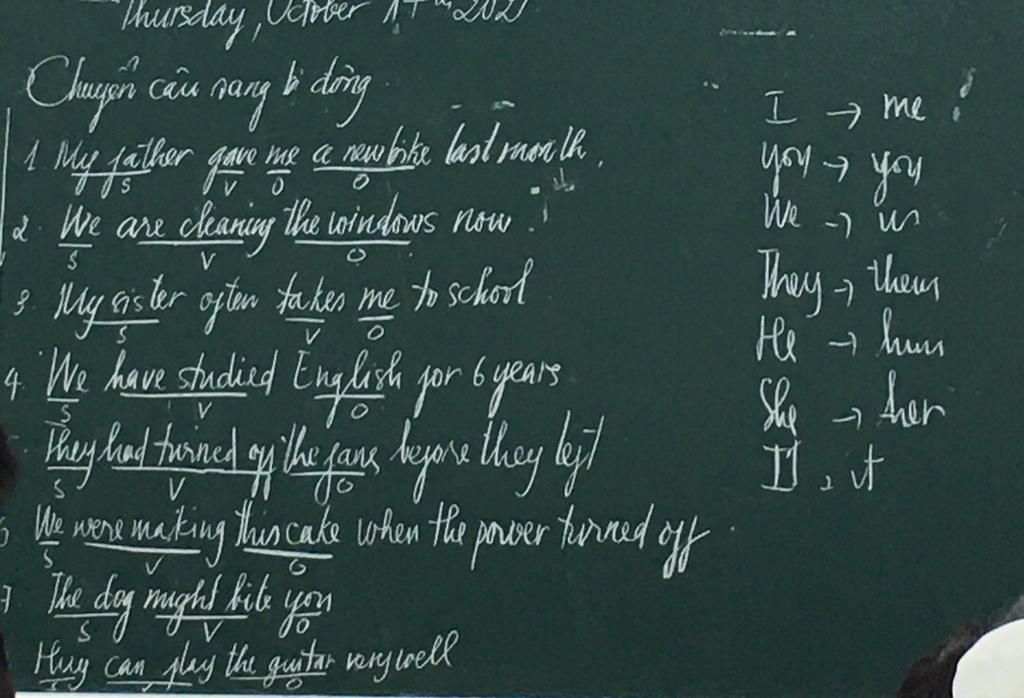 Thursday, October
Chuyển câu sang bị động
1. My father gave me a new bike last month.
S V O O
2. We are cleaning the windows now.
S V O
3. My sister often takes me to school
S V O
4. We have studied English for 6 years
S V O
They had turned off the fans before they left
S V O
6 We were making this cake when the power turned off
S V O
7 The dog might bite you
S V O
Huy can play the guitar very well
S V O
I → me
you → you
We → us
They → them
He → him
She → her
It → it